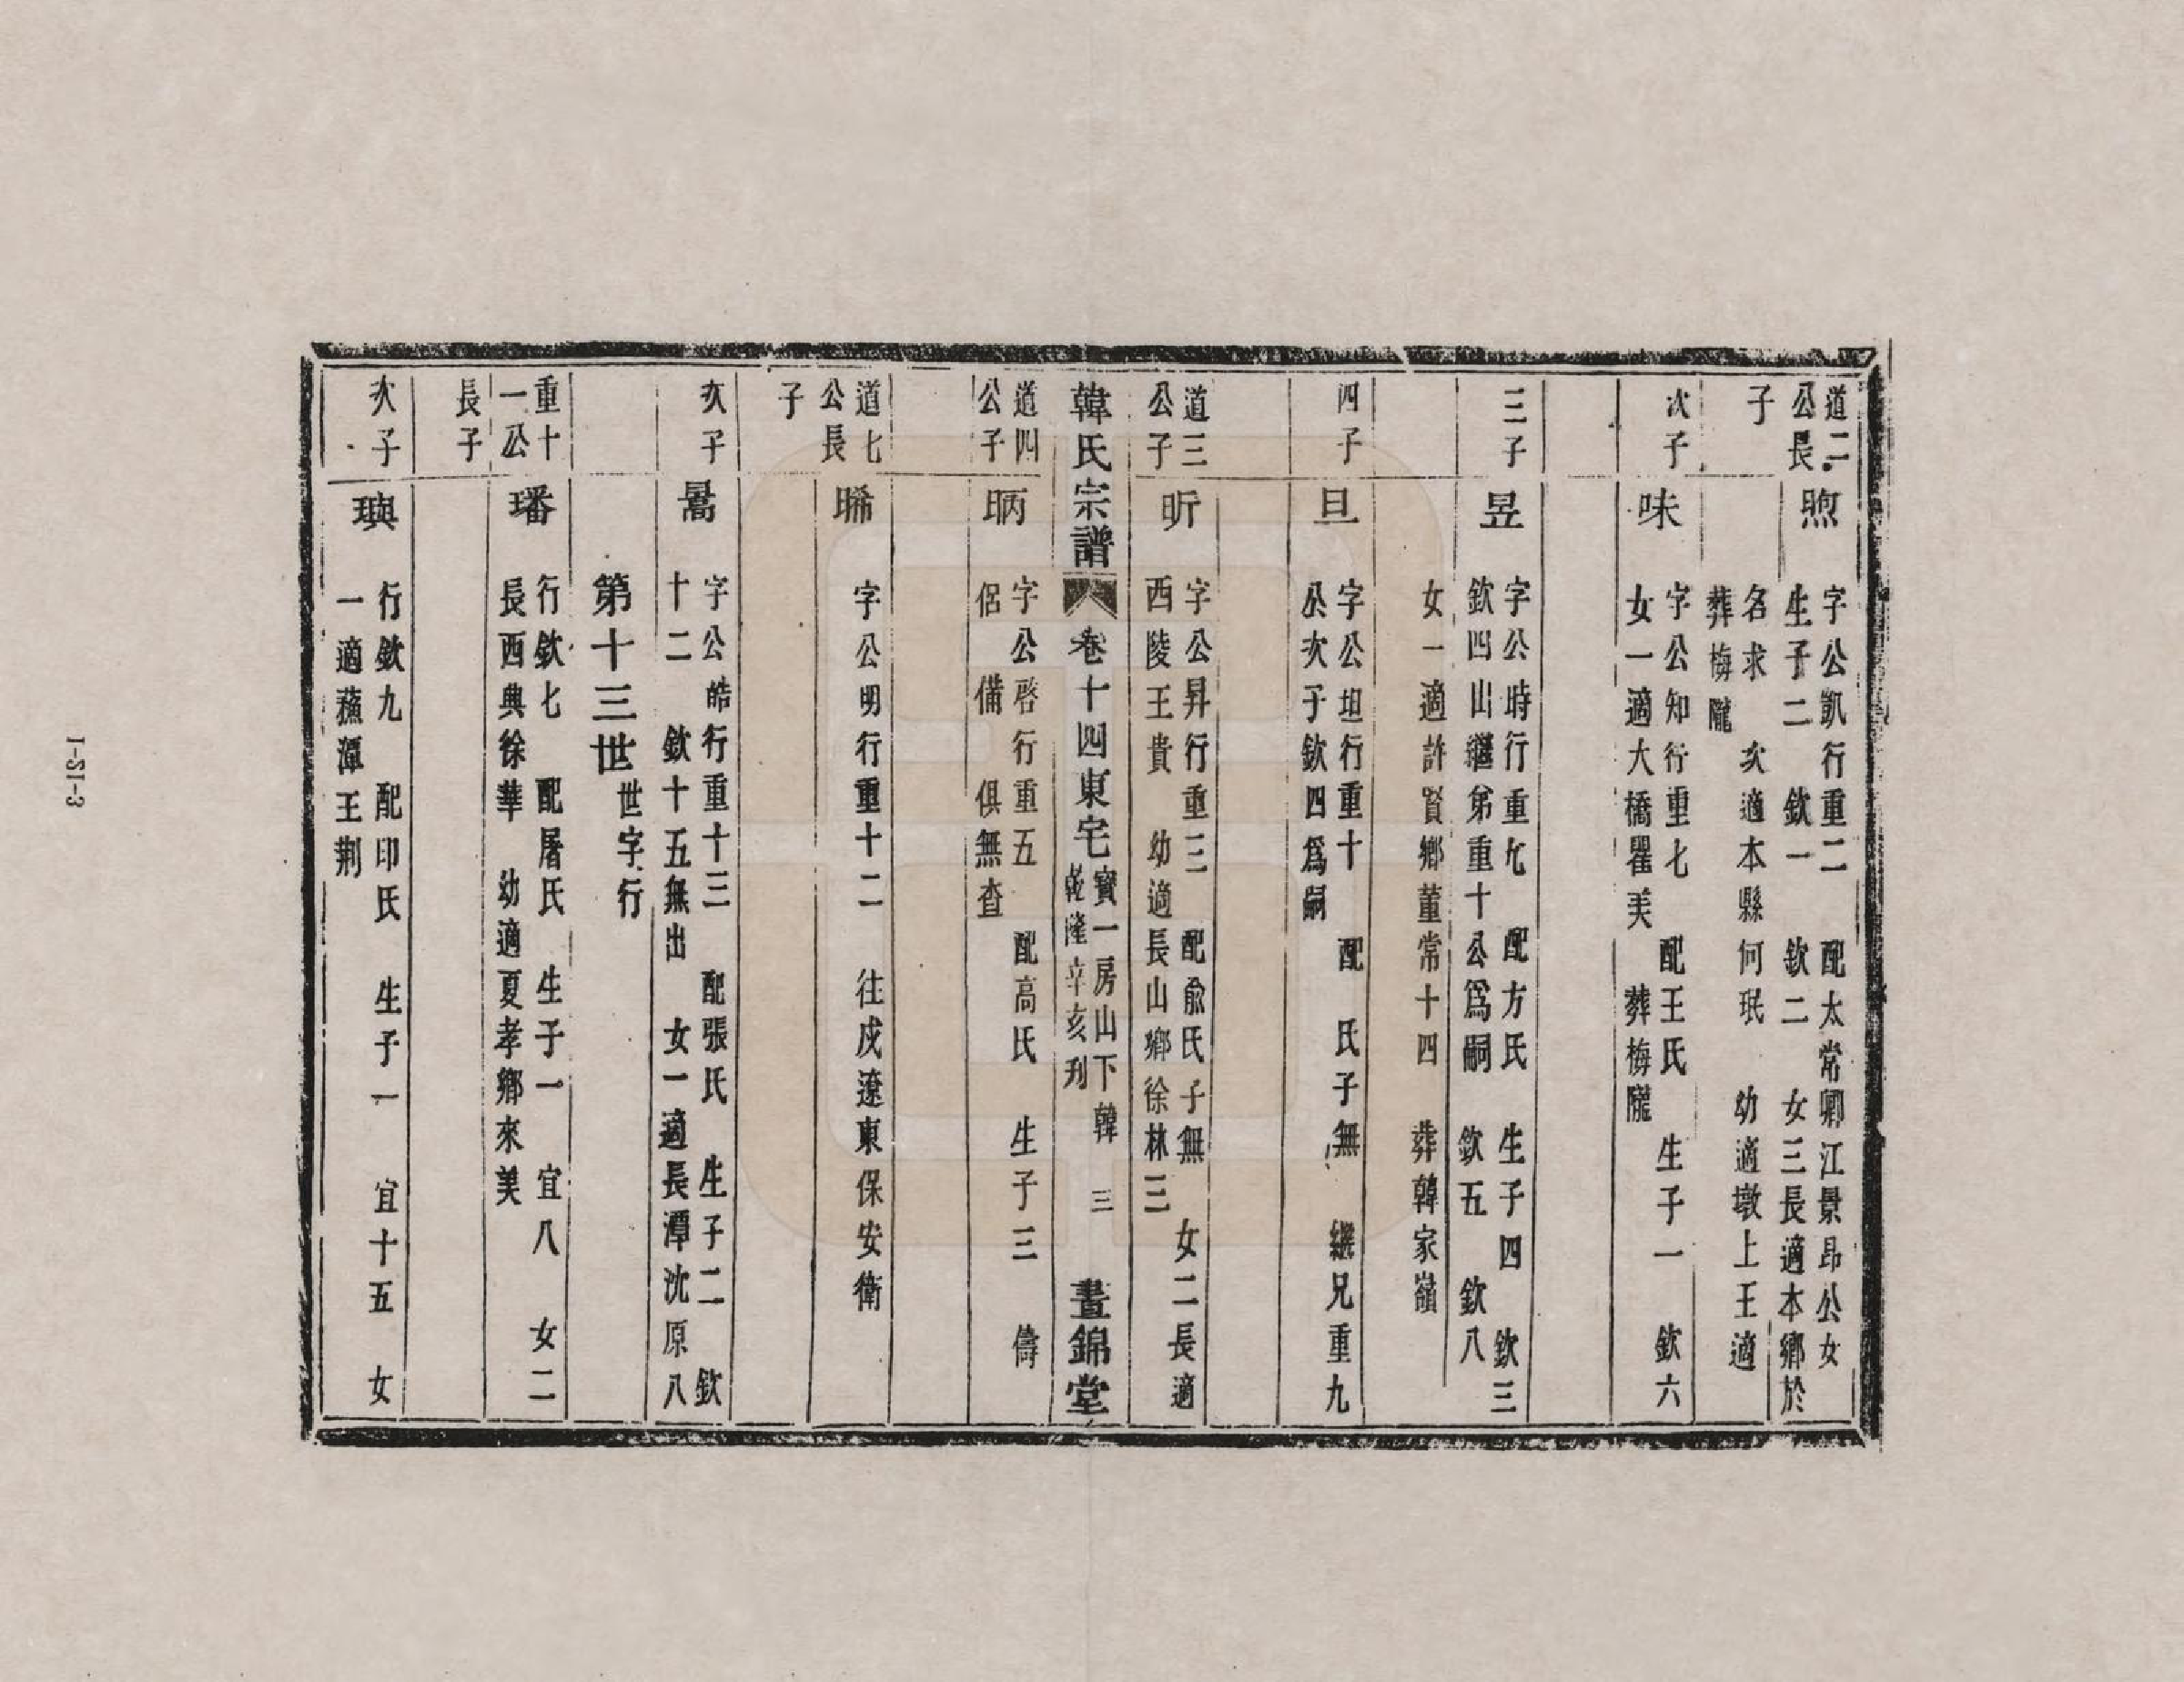 道二
公長
子
煦
字公凱行重二　配太常卿江景昂公女
生子二　欽一　欽二　女三長適本鄉於
名求　次適本縣何珉　幼適墩上王適
葬梅隴
次子
味
字公知行重七　配王氏　生子一　欽六
女一適大橋瞿美　葬梅隴
三子
昱
字公時行重九　配方氏　生子四　欽三
欽四出繼弟重十公為嗣　欽五　欽八
女一適許賢鄉董常十四　葬韓家嶺
四子
旦
字公坦行重十　配　氏子無　繼兄重九
公次子欽四為嗣
道三
公子
昕
字公昇行重三　配俞氏子無　女二長適
西陵王貴　幼適長山鄉徐林三
韓氏宗譜　卷十四東宅　寶一房山下韓　三　晝錦堂
乾隆辛亥刋
道四
公子
昞
字公啓行重五　配高氏　生子三　儔
侶　備　俱無查
道七
公長
子
晞
字公明行重十二　往戍遼東保安衛
次子
暠
字公皓行重十三　配張氏　生子二　欽
十二　欽十五無出　女一適長潭沈原八
第十三世　世字行
重十
一公
長子
璠
行欽七　配屠氏　生子一　宜八　女二
長西興徐華　幼適夏孝鄉來美
次子
璵
行欽九　配印氏　生子一　宜十五　女
一適蘓潭王荆
1-S1-3